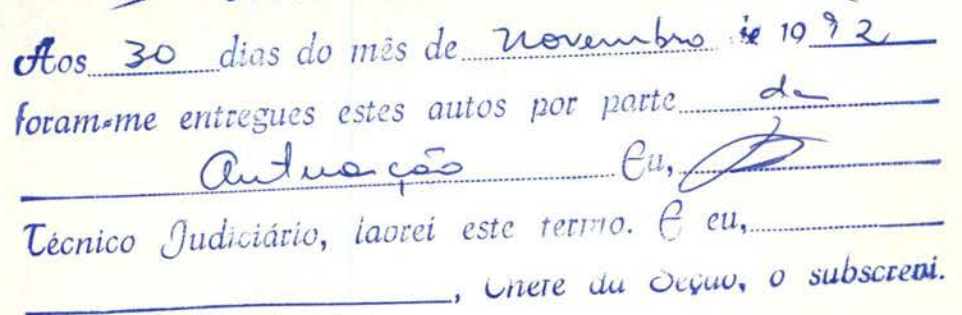 Aos 30 dias do mês de Novembro de 1992
foram-me entregues estes autos por parte da
autuação Eu,
Técnico Judiciário, lavrei este termo. E eu,
, Chefe da Seção, o subscrevi.